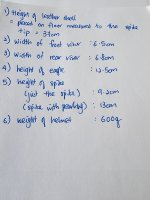 1) Height of leather shell
= placed on floor measured to the spike
tip = 31cm
2) width of front visor : 6.5cm
3) width of rear visor : 6.8cm
4) height of eagle : 12.5cm
5) height of spike
(just the spike) : 9.2cm
(spike with pearlring) : 13cm
6) weight of helmet : 600g